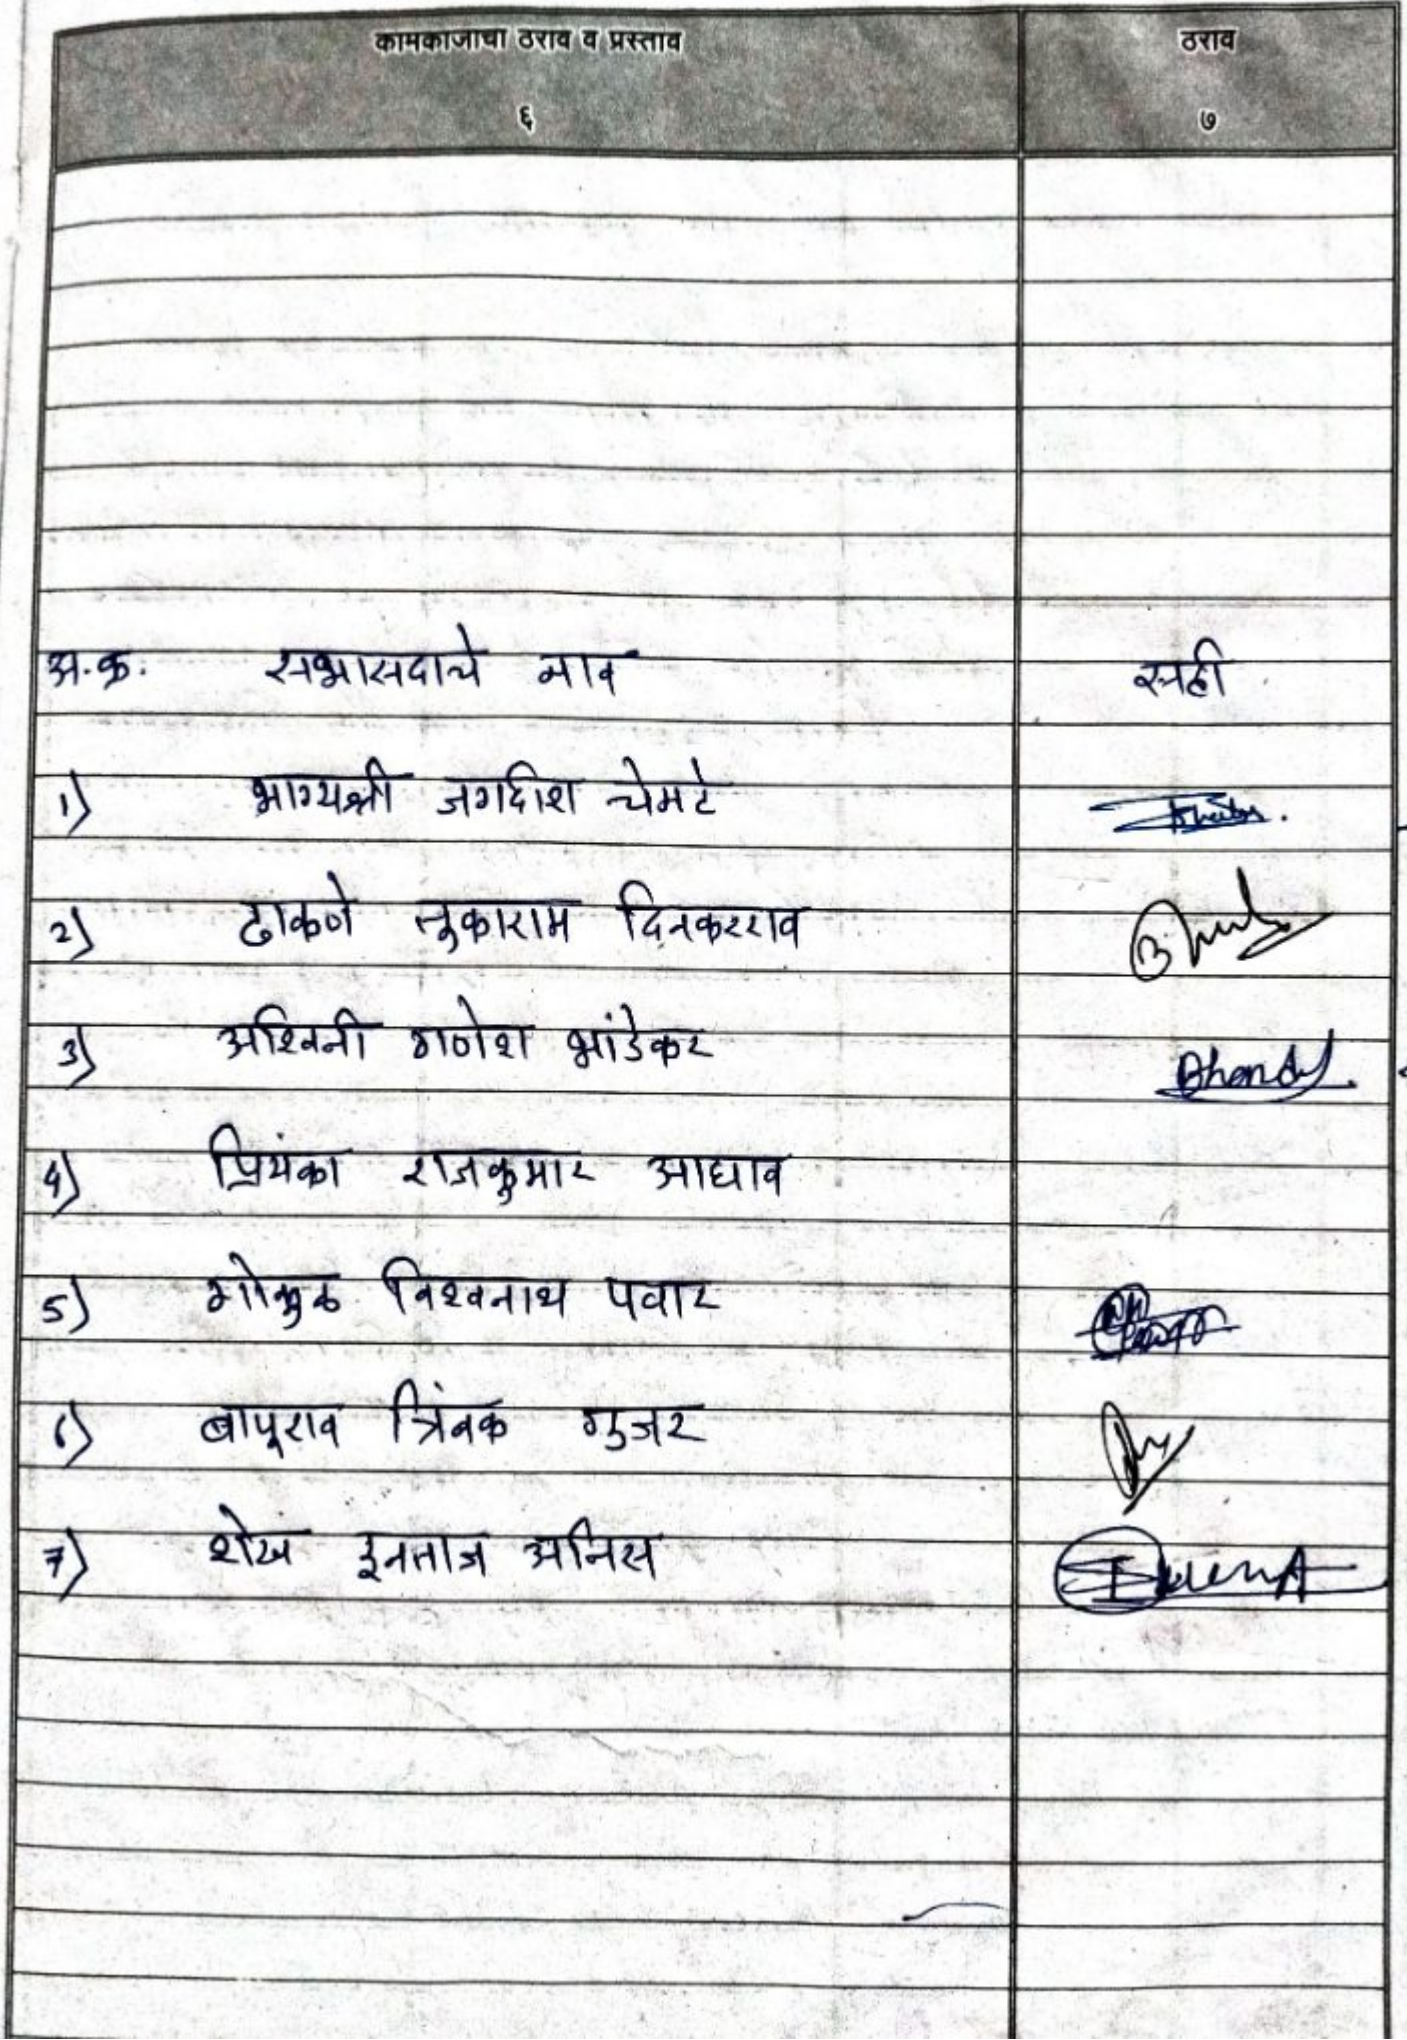 कामकाजाचा ठराव व प्रस्ताव ठराव
६ ७
अ.क्र. सभासदाचे नाव सही
1) भाग्यश्री जगदीश चेमटे
2) ढाकणे तुकाराम दिनकरराव
3) अश्विनी गणेश भांडेकर
4) प्रियंका राजकुमार आघाव
5) गोकुळ विश्वनाथ पवार
6) बापूराव त्रिंबक गुजर
7) शेख इनताज अनिस